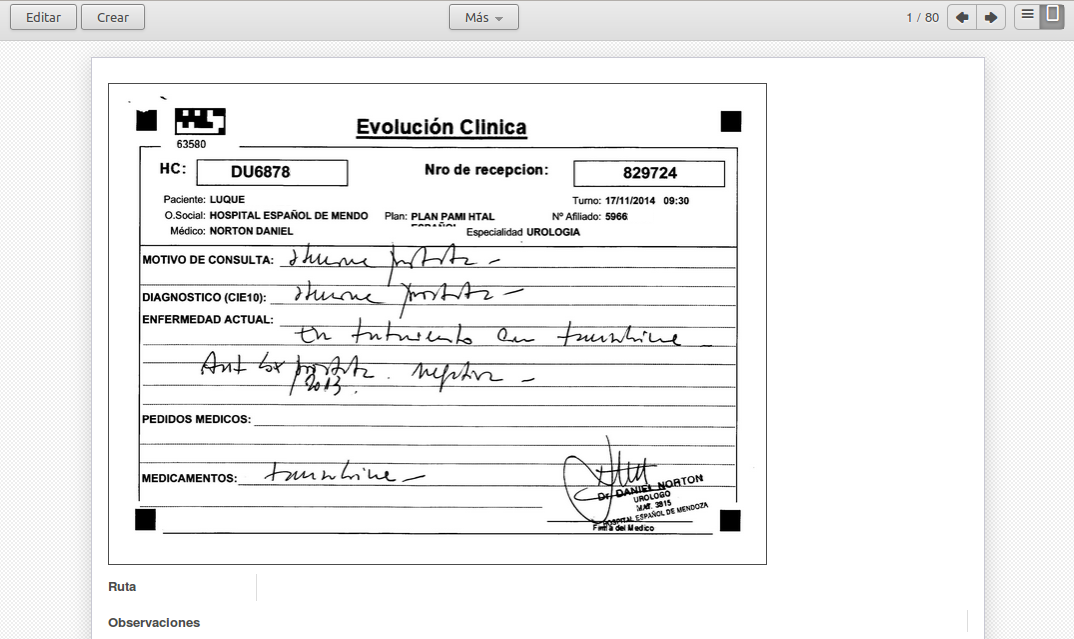 Editar Crear Más 1 / 80
63580
Evolución Clinica
HC: DU6878 Nro de recepcion: 829724
Paciente: LUQUE Turno: 17/11/2014 09:30
O.Social: HOSPITAL ESPAÑOL DE MENDO Plan: PLAN PAMI HTAL Nº Afiliado: 5966
ESPAÑOL
Médico: NORTON DANIEL Especialidad UROLOGIA
MOTIVO DE CONSULTA: prostata -
DIAGNOSTICO (CIE10): prostata -
ENFERMEDAD ACTUAL:
en tratamiento con
Ant bx prostata negativa -
2013.
PEDIDOS MEDICOS:
MEDICAMENTOS:
Dr. DANIEL NORTON
UROLOGO
MAT. 3915
HOSPITAL ESPAÑOL DE MENDOZA
Firma del Medico
Ruta
Observaciones